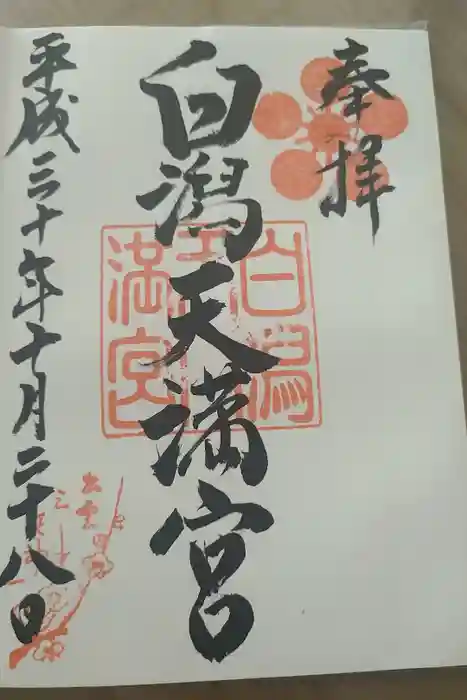 奉拝
白潟天満宮
白潟天満宮
平成三十年十月二十八日
出雲